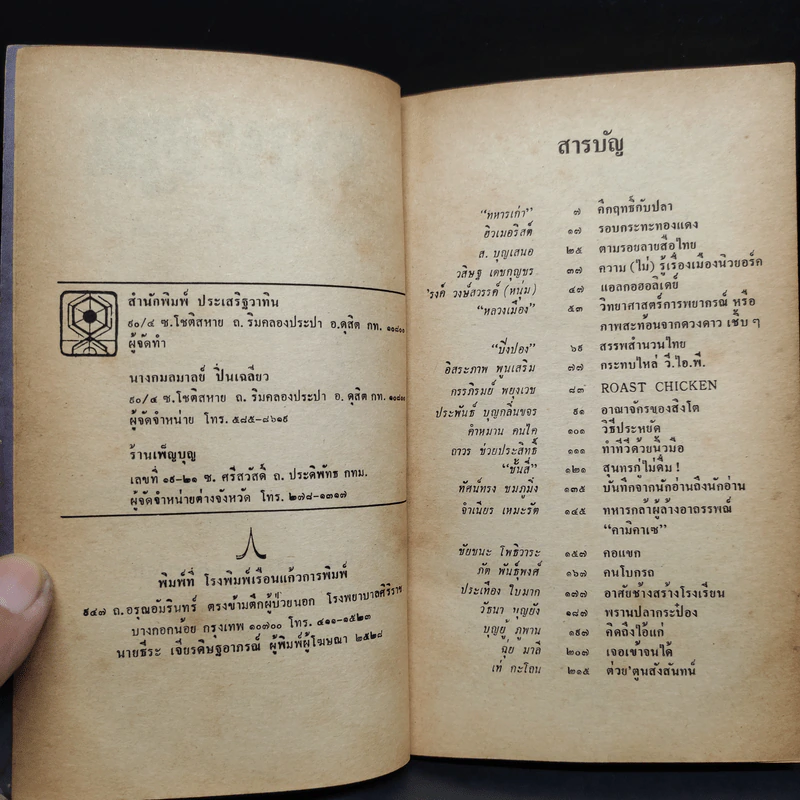 สำนักพิมพ์ ประเสริฐวาทิน
๙๐/๔ ซ.โชติสหาย ถ. ริมคลองประปา อ.ดุสิต กท. ๑๐๘๐๐
ผู้จัดทำ
นางกมลมาลย์ ปิ่นเฉลียว
๙๐/๔ ซ.โชติสหาย ถ. ริมคลองประปา อ. ดุสิต กท. ๑๐๘๐๐
ผู้จัดจำหน่าย โทร. ๕๘๕-๘๖๑๙
ร้านเพ็ญบุญ
เลขที่ ๑๙-๒๑ ซ. ศรีสวัสดิ์ ถ. ประดิพัทธ กทม.
ผู้จัดจำหน่ายต่างจังหวัด โทร. ๒๗๘-๑๓๑๗
พิมพ์ที่ โรงพิมพ์เรือนแก้วการพิมพ์
๙๔๗ ถ.อรุณอัมรินทร์ ตรงข้ามตึกผู้ป่วยนอก โรงพยาบาลศิริราช
บางกอกน้อย กรุงเทพ ๑๐๗๐๐ โทร. ๔๑๑-๑๕๒๓
นายธีระ เจียรดิษฐอาภรณ์ ผู้พิมพ์ผู้โฆษณา ๒๕๒๘
สารบัญ
“ทหารเก่า” ๗ คึกฤทธิ์กับปลา
ฮิวเมอริสต์ ๑๗ รอบกระทะทองแดง
ส. บุญเสนอ ๒๕ ตามรอยลายสือไทย
วสิษฐ เดชกุญชร ๓๗ ความ (ไม่) รู้เรื่องเมืองนิวยอร์ค
'รงค์ วงษ์สวรรค์ (หนุ่ม) ๔๗ แอลกอฮอลิเดย์
“หลวงเมือง” ๕๓ วิทยาศาสตร์การพยากรณ์ หรือ
ภาพสะท้อนจากดวงดาว เซ็บ ๆ
“ปิ่งปอง” ๖๙ สรรพสำนวนไทย
อิสระภาพ พูนเสริม ๗๗ กระทบไหล่ วี.ไอ.พี.
กรรภิรมย์ พยุงเวช ๘๓ ROAST CHICKEN
ประพันธ์ บุญกลิ่นขจร ๙๑ อาณาจักรของสิงโต
คำหมาน คนไค ๑๐๑ วิธีประหยัด
ถาวร ช่วยประสิทธิ์ ๑๑๑ ทำทีวีด้วยนิ้วมือ
“ขั้นสี่” ๑๒๑ สุนทรภู่ไม่ดื่ม !
ทัศน์ทรง ชมภูมิ่ง ๑๓๕ บันทึกจากนักอ่านถึงนักอ่าน
จำเนียร เหมะรัต ๑๔๕ ทหารกล้าผู้ล้างอาถรรพณ์
“คามิคาเซ”
ชัยชนะ โพธิวาระ ๑๕๗ คอแขก
ภัต พันธุ์พงศ์ ๑๖๗ คนโบกรถ
ประเทือง ใบมาก ๑๗๗ อาศัยช้างสร้างโรงเรียน
วัธนา บุญยัง ๑๘๗ พรานปลากระป๋อง
บุญยู้ ภูพาน ๑๙๗ คิดถึงไอ้แก่
ฉุ่ย มาลี ๒๐๗ เจอเข้าจนได้
เท่ กะโถน ๒๑๕ ต่วย'ตูนสังสันทน์